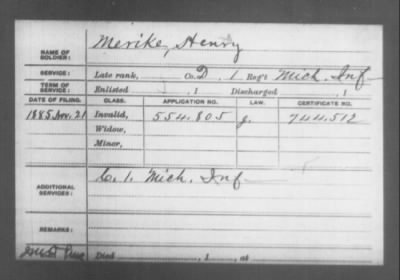 NAME OF SOLDIER: Merike, Henry
SERVICE: Late rank, Co. D, 1 Reg't Mich. Inf
TERM OF SERVICE: Enlisted , 1 Discharged , 1
DATE OF FILING. CLASS. APPLICATION NO. LAW. CERTIFICATE NO.
1885 Nov. 21 Invalid, 554.805 g. 744.512
Widow,
Minor,
ADDITIONAL SERVICES: C. 1. Mich. Inf
REMARKS:
Died , 1 , at